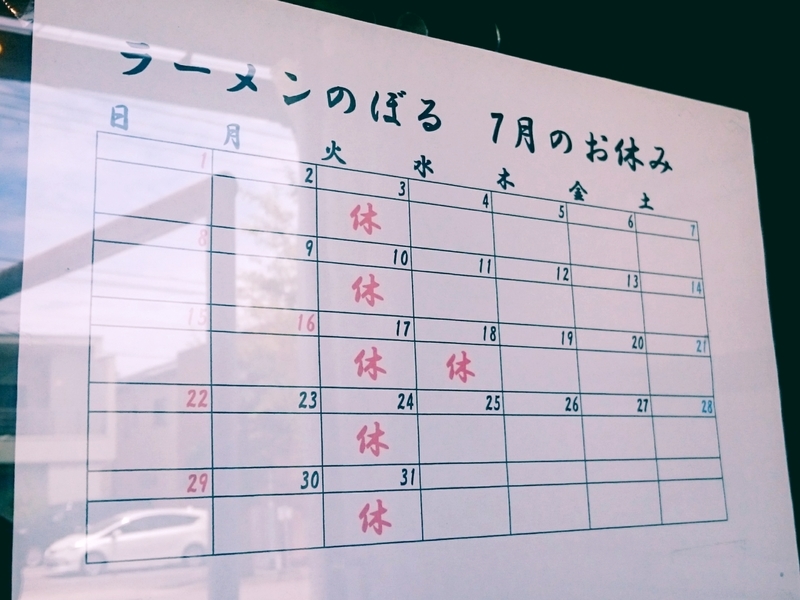 ラーメンのぼる 7月のお休み
日 月 火 水 木 金 土
1 2 3 4 5 6 7
休
8 9 10 11 12 13 14
休
15 16 17 18 19 20 21
休 休
22 23 24 25 26 27 28
休
29 30 31
休